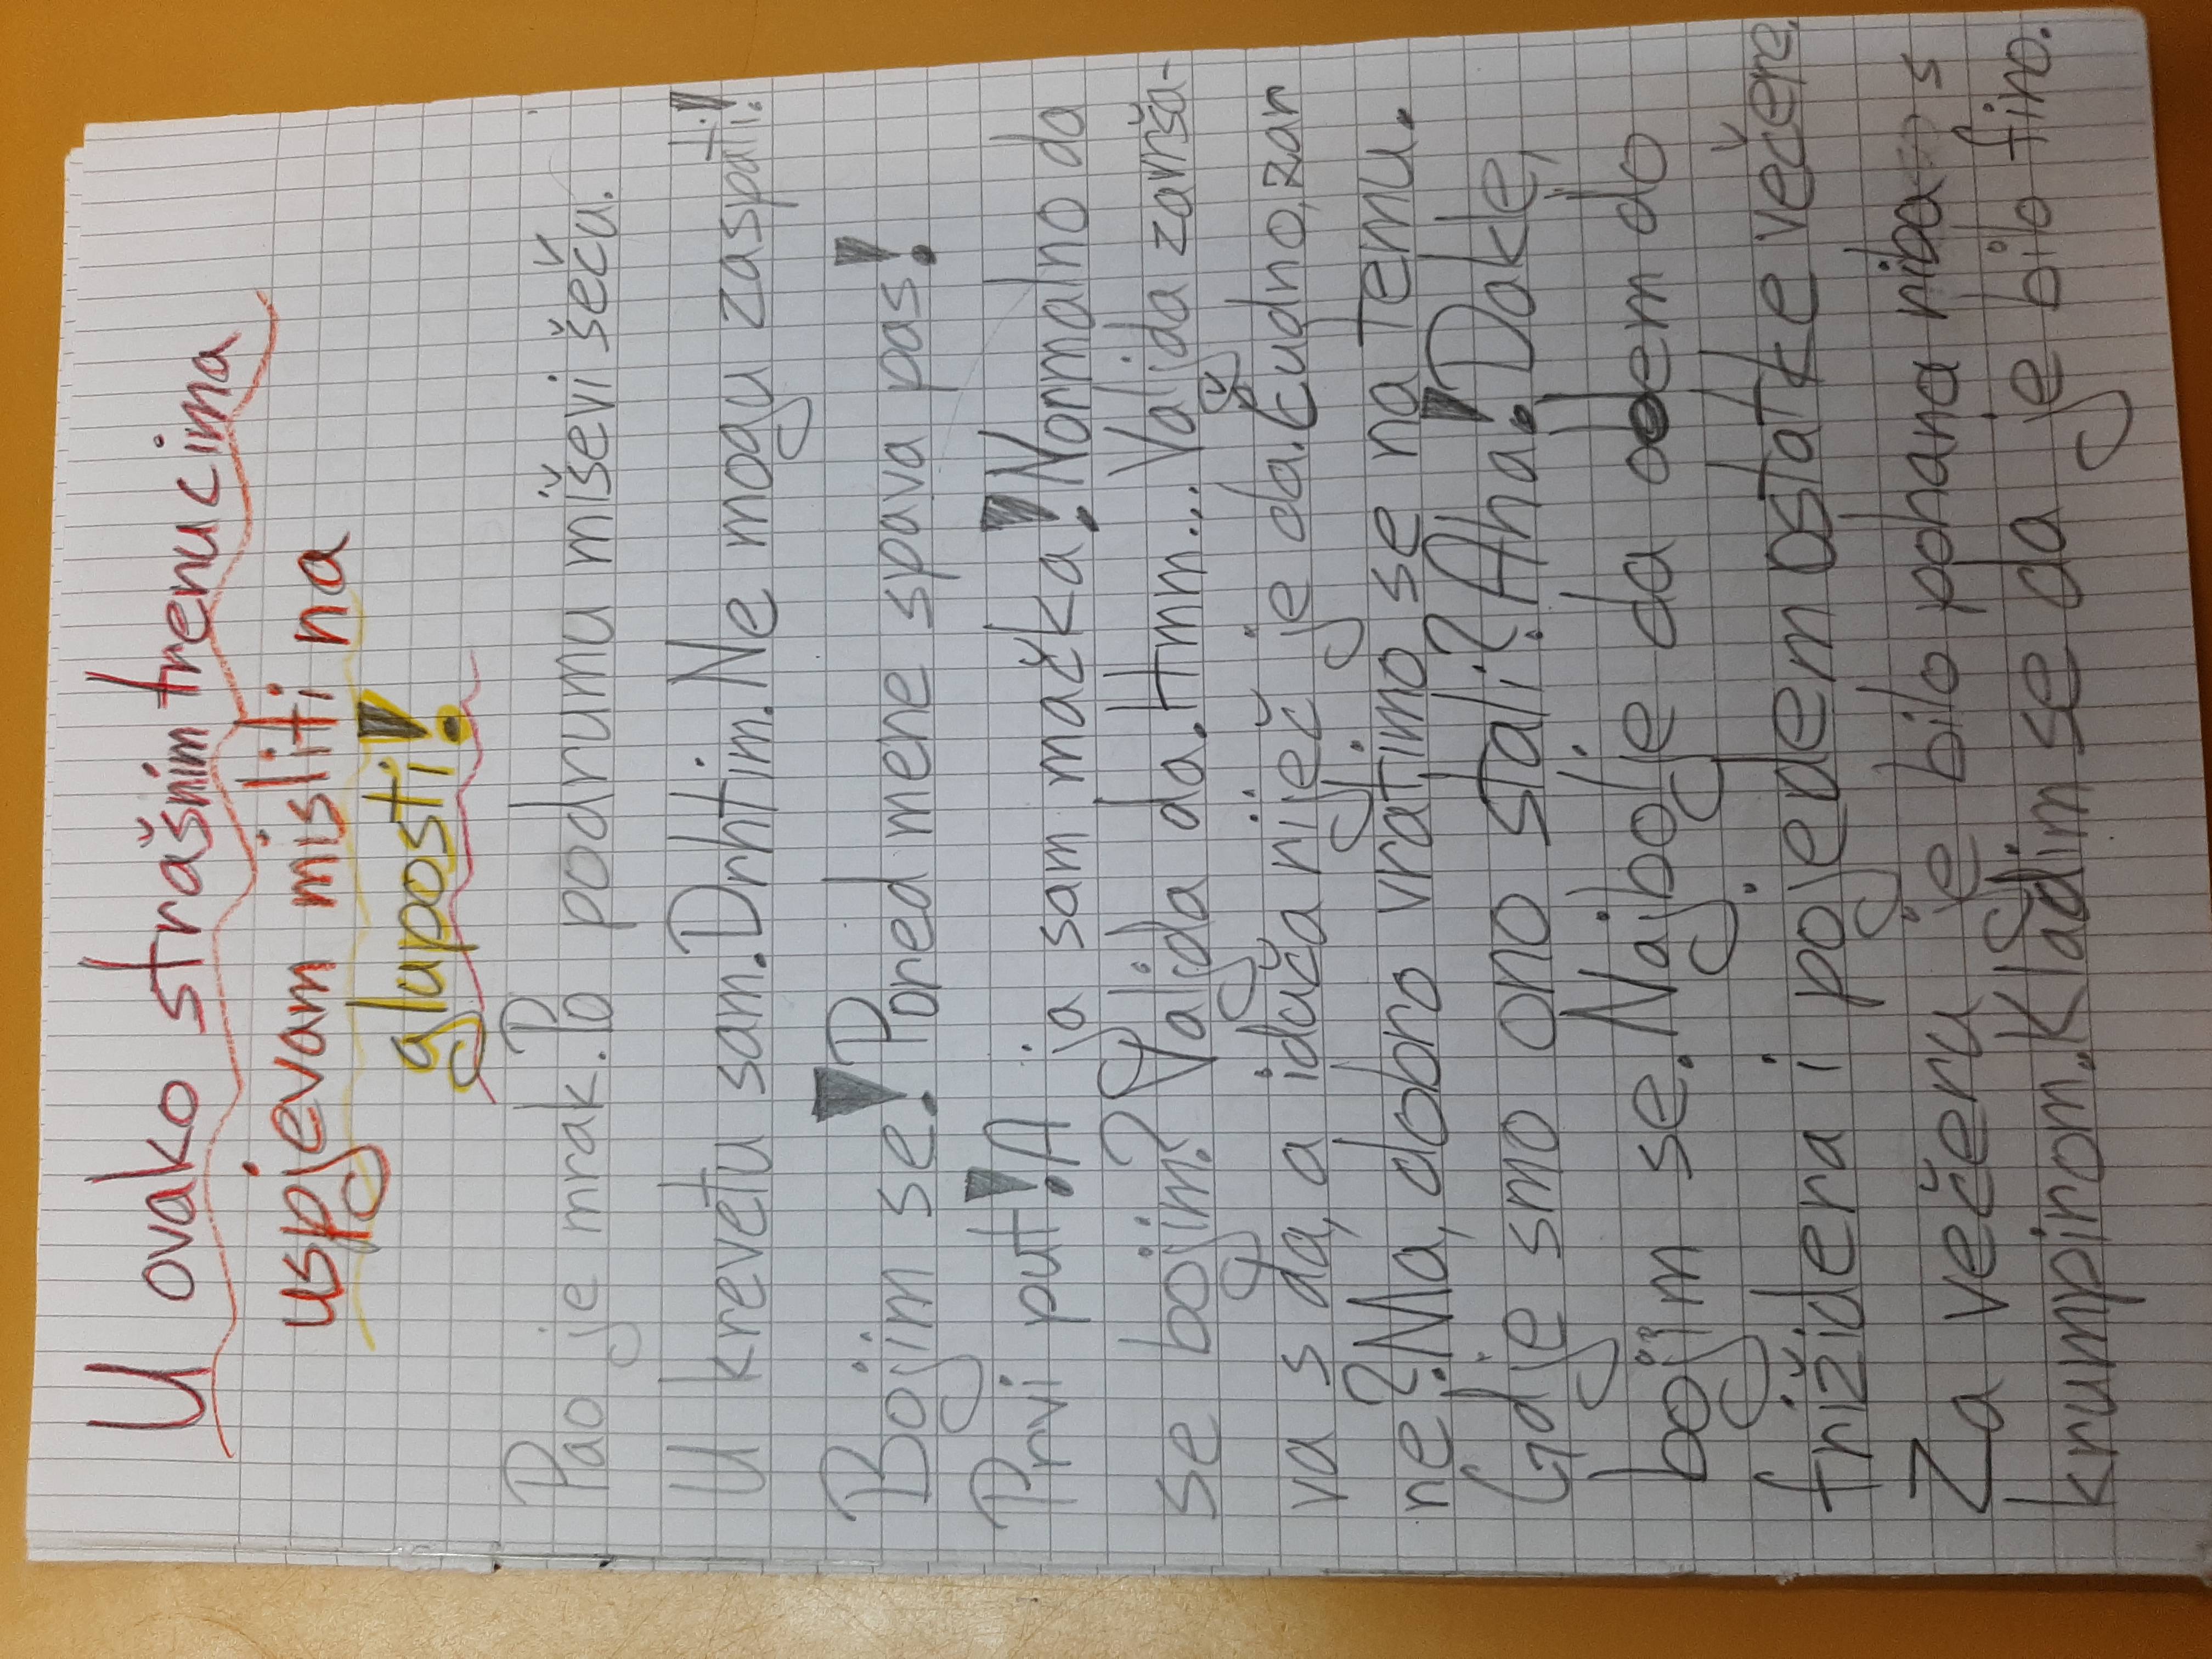 U ovako strašnim trenucima
uspjevam misliti na
gluposti!
Pao je mrak. Po podrumu miševi šeću.
U krevetu sam. Drhtim. Ne mogu zaspati!
Bojim se! Pored mene spava pas!
Prvi put! A ja sam mačka! Normalno da
se bojim? Valjda da. Hmm... Valjda završa-
va s da, a iduća riječ je da. Čudno, zar
ne? Ma, dobro vratimo se na temu.
Gdje smo ono stali? Aha! Dakle,
bojim se. Najbolje da odem do
frižidera i pojedem ostatke večere.
Za večeru je bilo pohana riba s
krumpirom. Kladim se da je bilo fino.